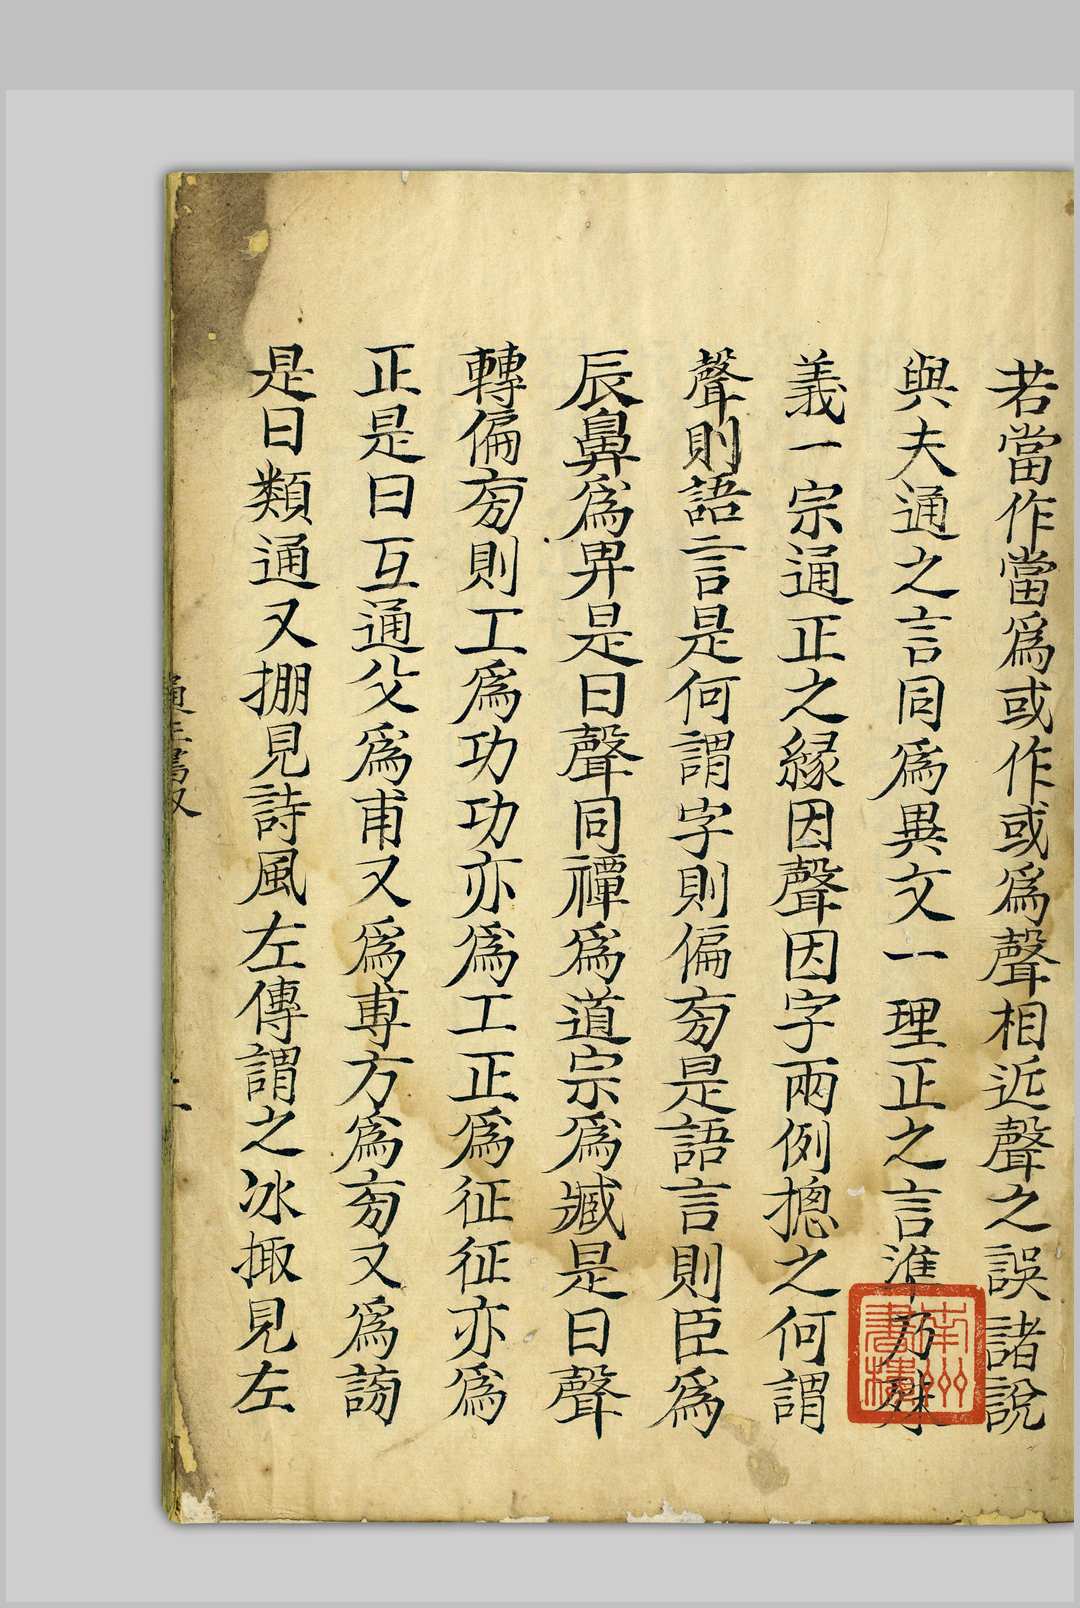 若當作當爲或作或爲聲相近聲之誤諸說
與夫通之言同爲異文一理正之言準乃殊
義一宗通正之緣因聲因字兩例摠之何謂
聲則語言是何謂字則偏旁是語言則臣爲
辰鼻爲畀是曰聲同禫爲道宗爲臧是曰聲
轉偏旁則工爲功功亦爲工正爲征征亦爲
正是曰互通父爲甫又爲尃方爲旁又爲謗
是曰類通又掤見詩風左傳謂之冰掫見左
南州書樓